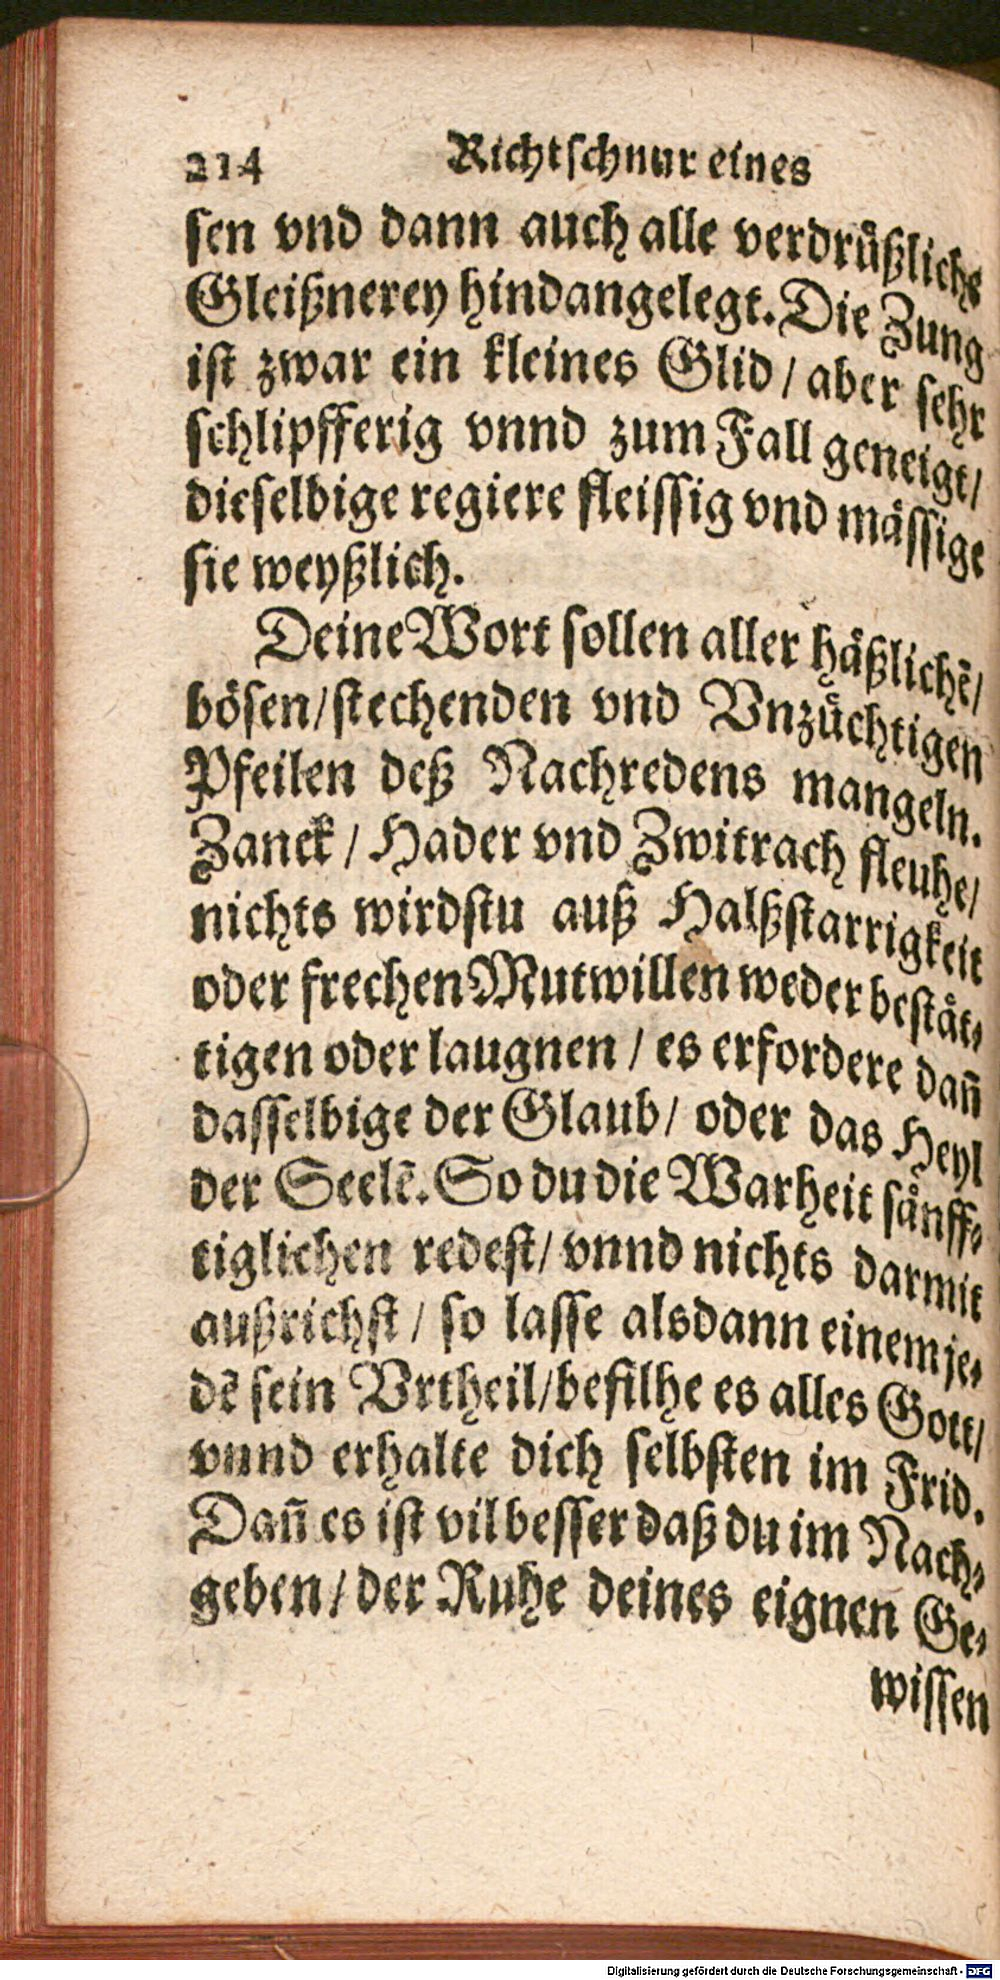 214 Richtschnur eines
sen vnd dann auch alle verdrüßliche
Gleißnerey hindangelegt. Die Zung
ist zwar ein kleines Glid / aber sehr
schlipfferig vnnd zum Fall geneigt /
dieselbige regiere fleissig vnd mässige
sie weyßlich.
Deine Wort sollen aller häßlichē /
bösen / stechenden vnd Vnzüchtigen
Pfeilen deß Nachredens mangeln.
Zanck / Hader vnd Zwitrach fleuhe /
nichts wirdstu auß Halßstarrigkeit
oder frechen Mutwillen weder bestät-
tigen oder laugnen / es erfordere dañ
dasselbige der Glaub / oder das Heyl
der Seelē. So du die Warheit sänff-
tiglichen redest / vnnd nichts darmit
außrichst / so lasse alsdann einem je-
dē sein Vrtheil / befilhe es alles Gott /
vnnd erhalte dich selbsten im Frid.
Dañ es ist vil besser daß du im Nach-
geben / der Ruhe deines eignen Ge-
wissen
Digitalisierung gefördert durch die Deutsche Forschungsgemeinschaft - DFG